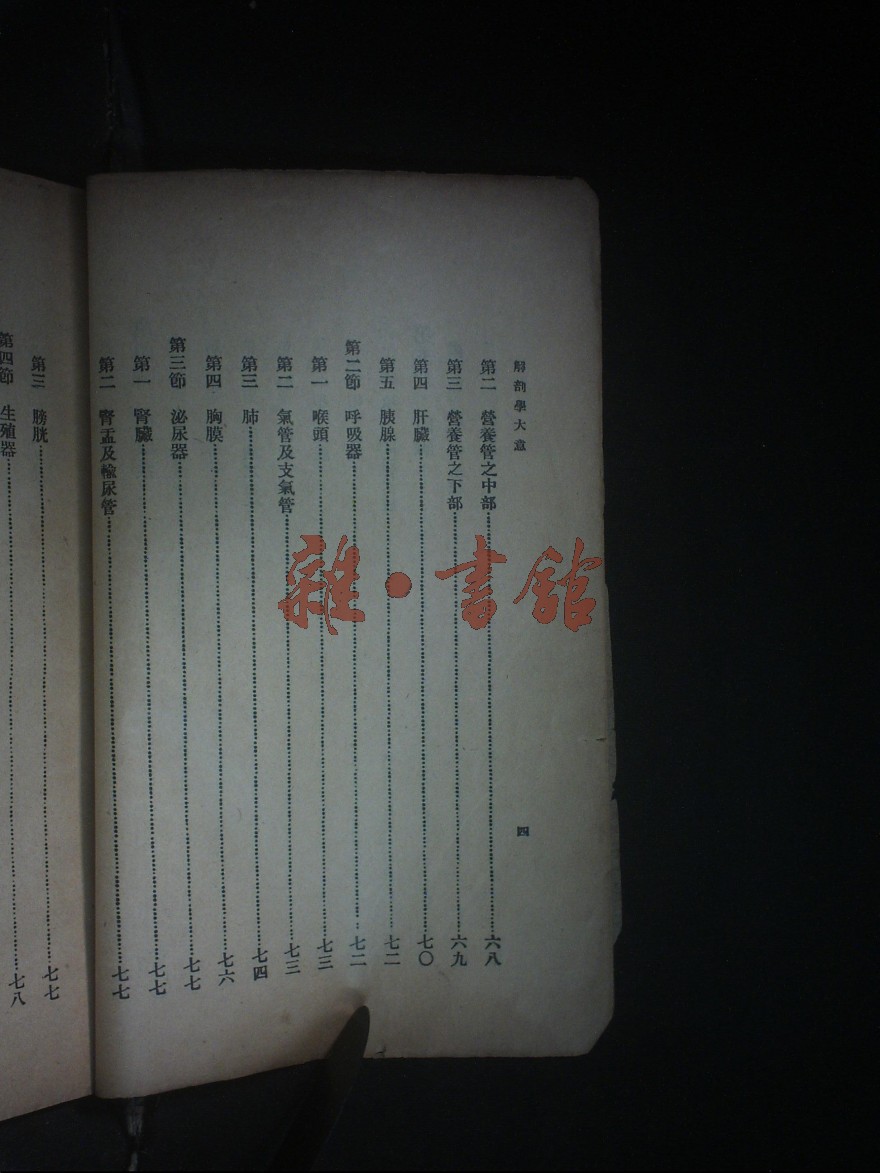 解剖學大意
四
第二 營養管之中部 六八
第三 營養管之下部 六九
第四 肝臟 七〇
第五 胰腺 七二
第二節 呼吸器 七二
第一 喉頭 七三
第二 氣管及支氣管 七三
第三 肺 七四
第四 胸膜 七六
第三節 泌尿器 七七
第一 腎臟 七七
第二 腎盂及輸尿管 七七
第三 膀胱 七七
第四節 生殖器 七八
雜·書館